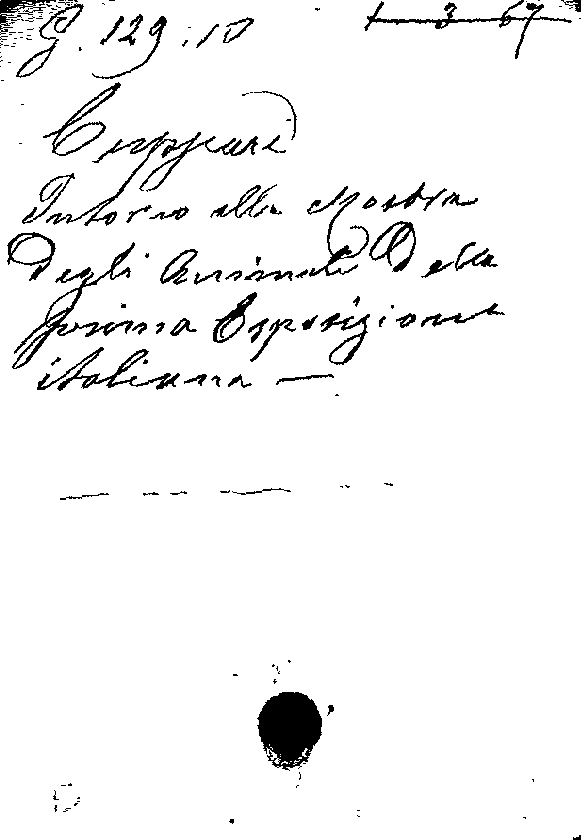 G. 129.10 1 3 67
Cuppari
Intorno alla Mostra
Degli Animali Della
prima Esposizione
italiana —